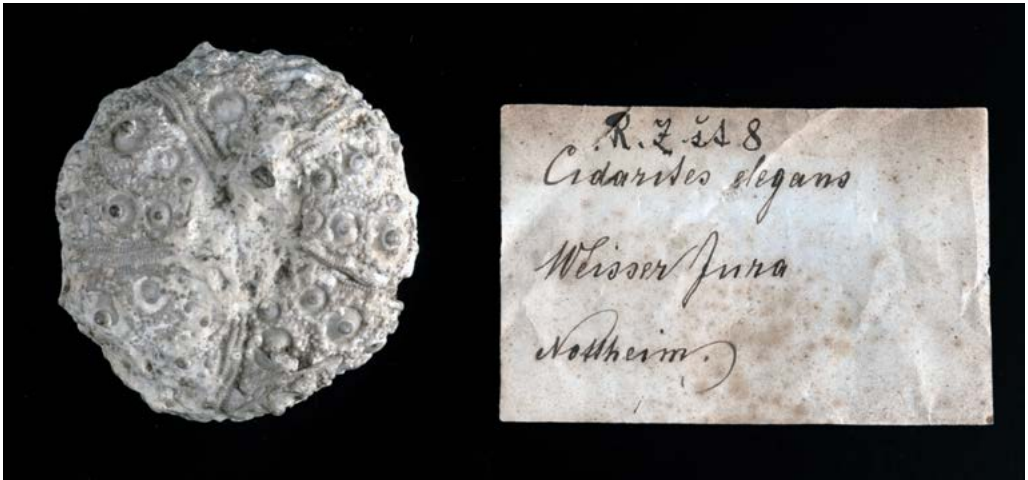 R. Z. št 8
Cidarites elegans
Weisser Jura
Nottheim.